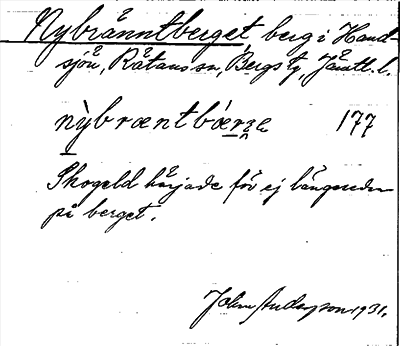 Nybränntberget berg i Hand-
sjön, Rätans sn, Bergs tg, Jämtl. l.
nỳbræntbǽrge 177
Skogeld härjade för ej längesedan
på berget.
John Anderson 1931.